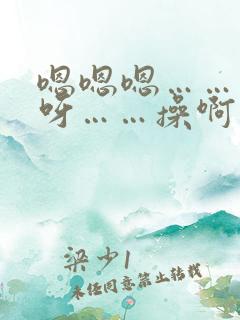 嗯嗯嗯……
呀……操啊
梁少1
未经同意禁止转载